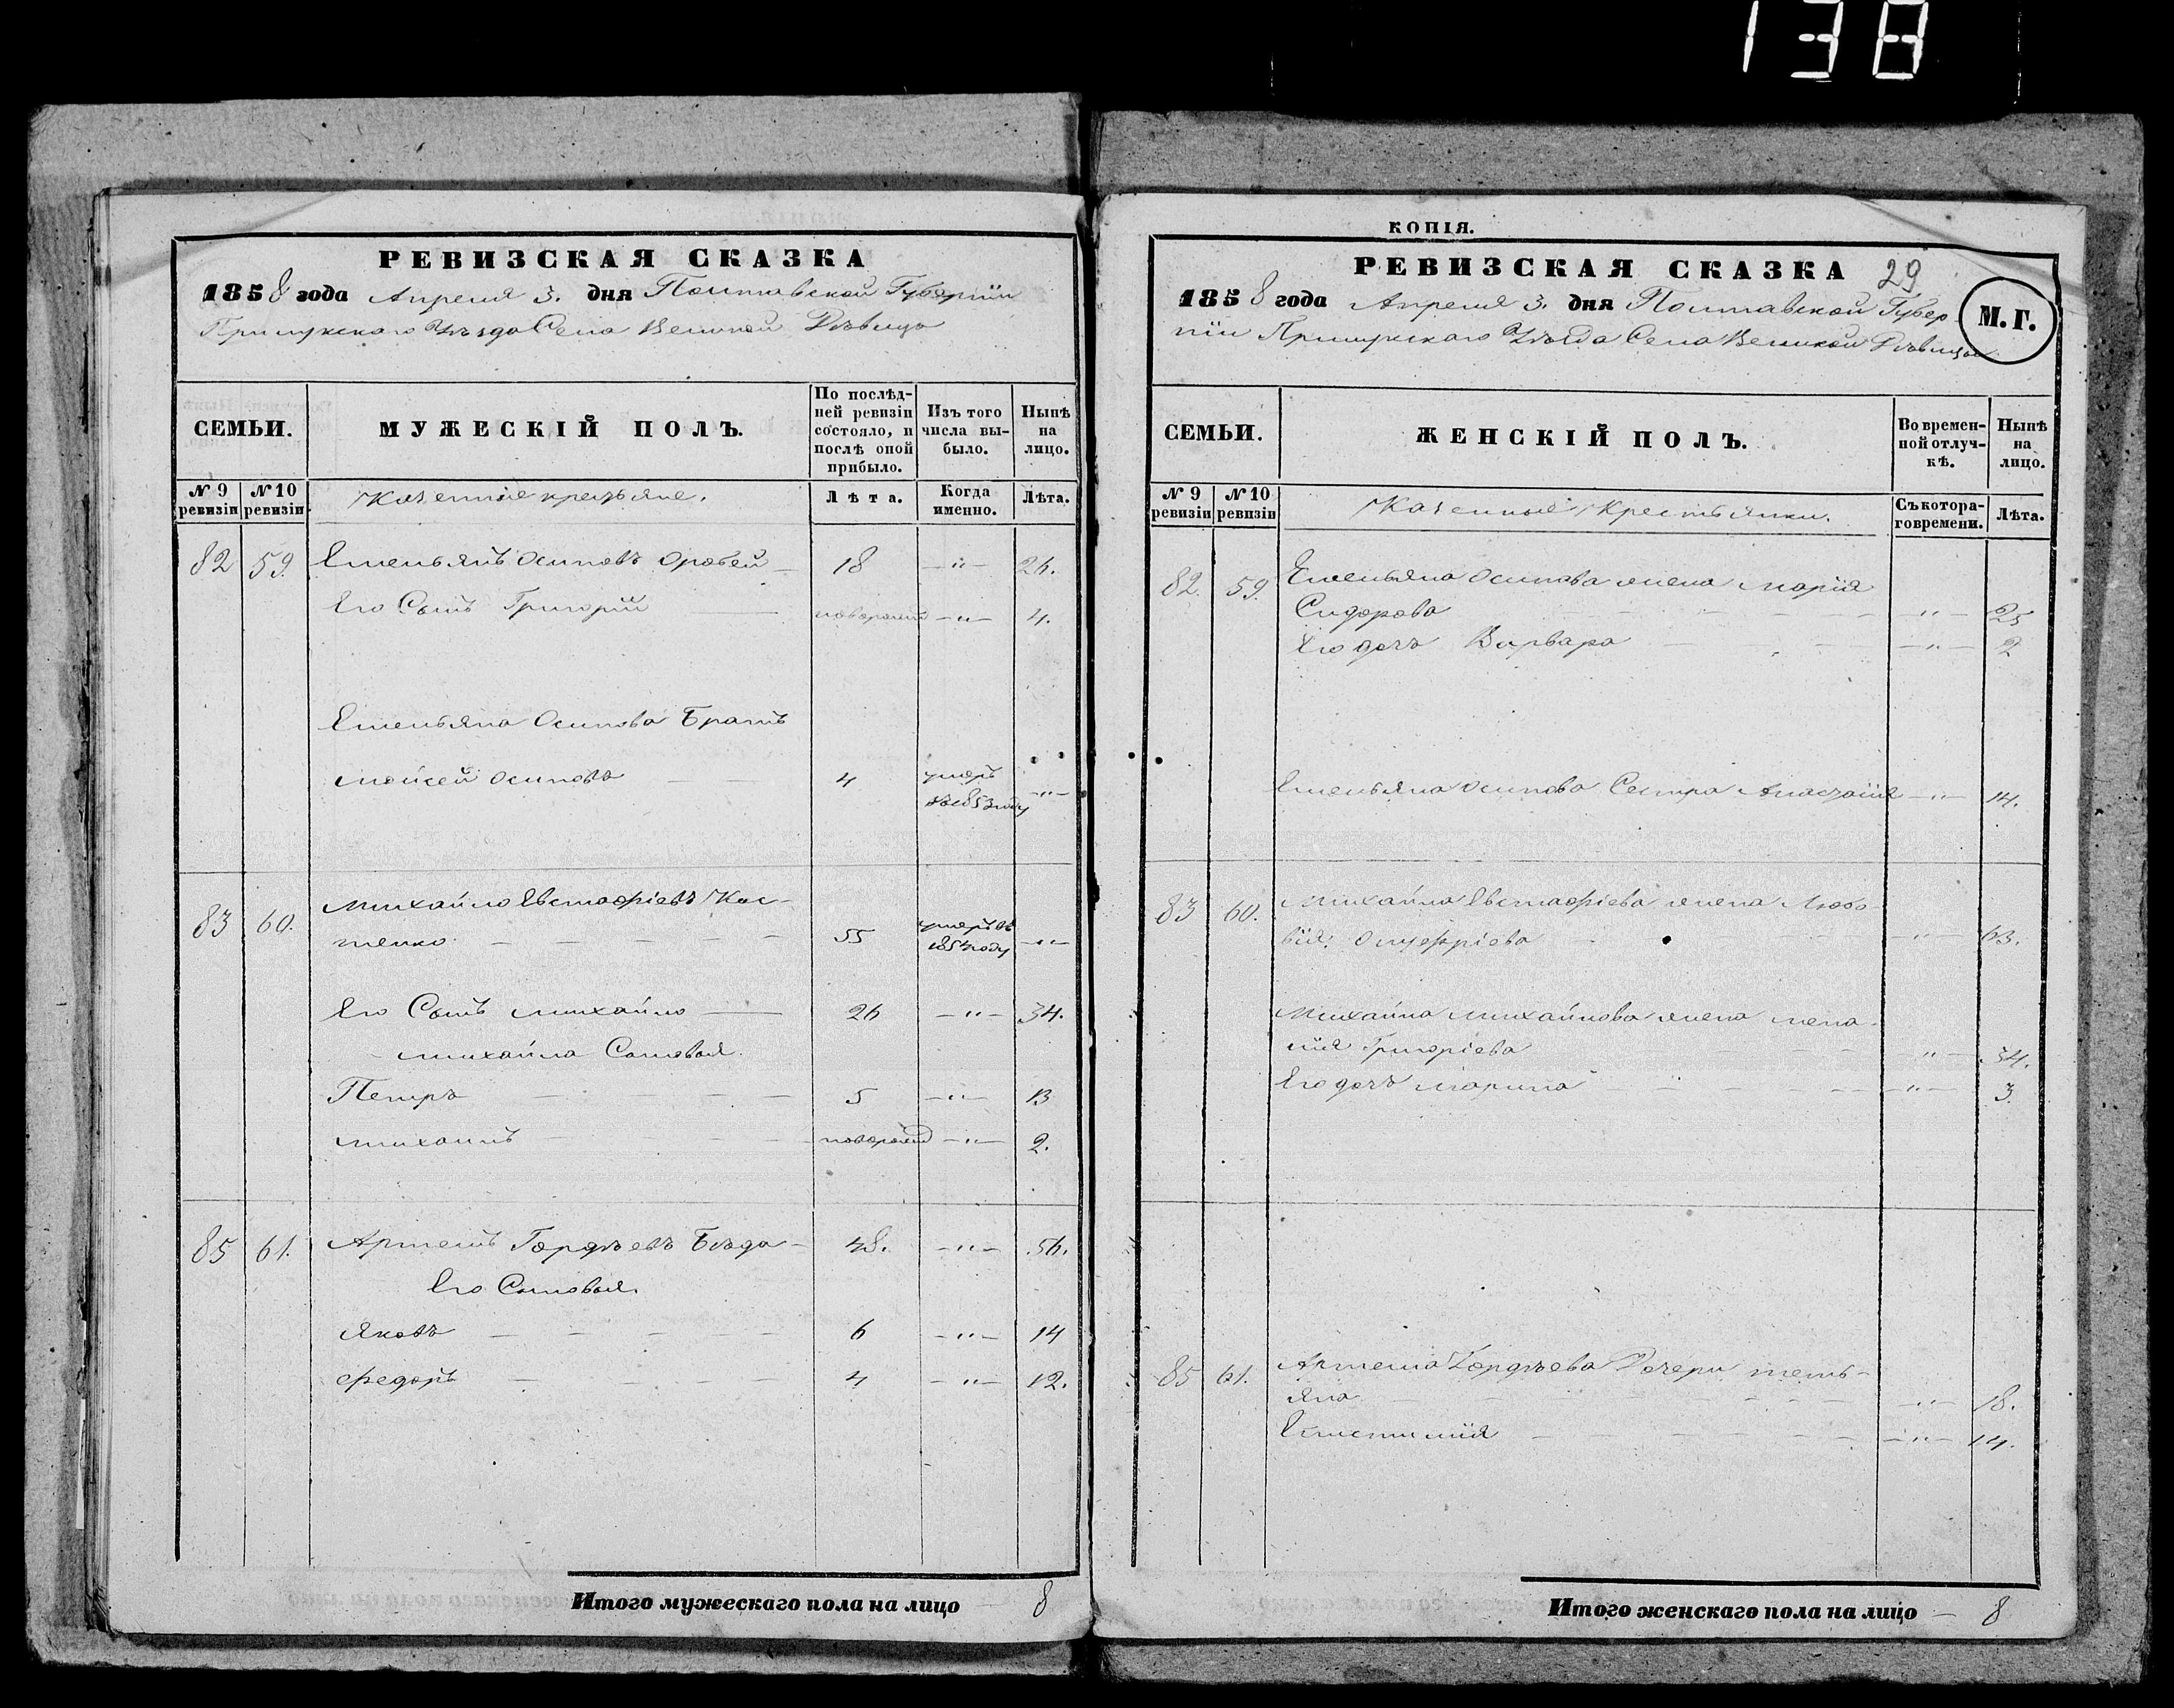 138
РЕВИЗСКАЯ СКАЗКА
1858 года Апреля 3. дня Полтавской Губерніи
Прилукскаго Уѣзда Села Великой Дѣвицы
СЕМЬИ.
МУЖЕСКІЙ ПОЛЪ.
По послѣд-
ней ревизіи
состояло, и
послѣ оной
прибыло.
Изъ того
числа вы-
было.
Нынѣ
на
лицо.
№ 9
ревизіи
№ 10
ревизіи
Казенные крестьяне.
Лѣта.
Когда
именно.
Лѣта.
82 59. Емельянъ Осиповъ Оробей — 18 —"— 26.
Его Сынъ Григорій — новорожд —"— 4.
Емельяна Осипова Братъ
Мойсей Осиповъ — — 4 умеръ
въ 1853 году —"—
83 60. Михайло Евстафіевъ Кос-
тенко — — — — — 55 умеръ въ
1854 году —"—
Его Сынъ Михайло — 26 —"— 34.
Михайла Сыновья.
Петръ — — — — 5 —"— 13
Михаилъ — — — — новорожд —"— 2.
85 61. Артемъ Гордѣевъ Бѣда — 48. —"— 56.
Его Сыновья.
Яковъ — — — — — 6 —"— 14
Федоръ — — — — 4 —"— 12.
Итого мужескаго пола на лицо 8
КОПІЯ.
РЕВИЗСКАЯ СКАЗКА 29
1858 года Апреля 3. дня Полтавской Губер-
ніи Прилукскаго Уѣзда Села Великой Дѣвицы
М. Г.
СЕМЬИ.
ЖЕНСКІЙ ПОЛЪ.
Во времен-
ной отлуч-
кѣ.
Нынѣ
на
лицо.
№ 9
ревизіи
№ 10
ревизіи
Казенные Крестьянки.
Съ котора-
го времени.
Лѣта.
82. 59. Емельяна Осипова жена Марія
Сидорова — — — — —"— 25
Его дочь Варвара — — — —"— 2
Емельяна Осипова Сестра Анастасія —"— 14.
83 60. Михайла Евстафіева жена Любо-
вія Онуфріева — —"— 63.
Михайла Михайлова жена Мела-
нія Григоріева — — — —"— 34.
Его дочь Марина — — — —"— 3.
85 61. Артема Гордѣева Дочери Теть-
яна — — — — — —"— 18.
Епистимія — — — — —"— 14.
Итого женскаго пола на лицо — 8